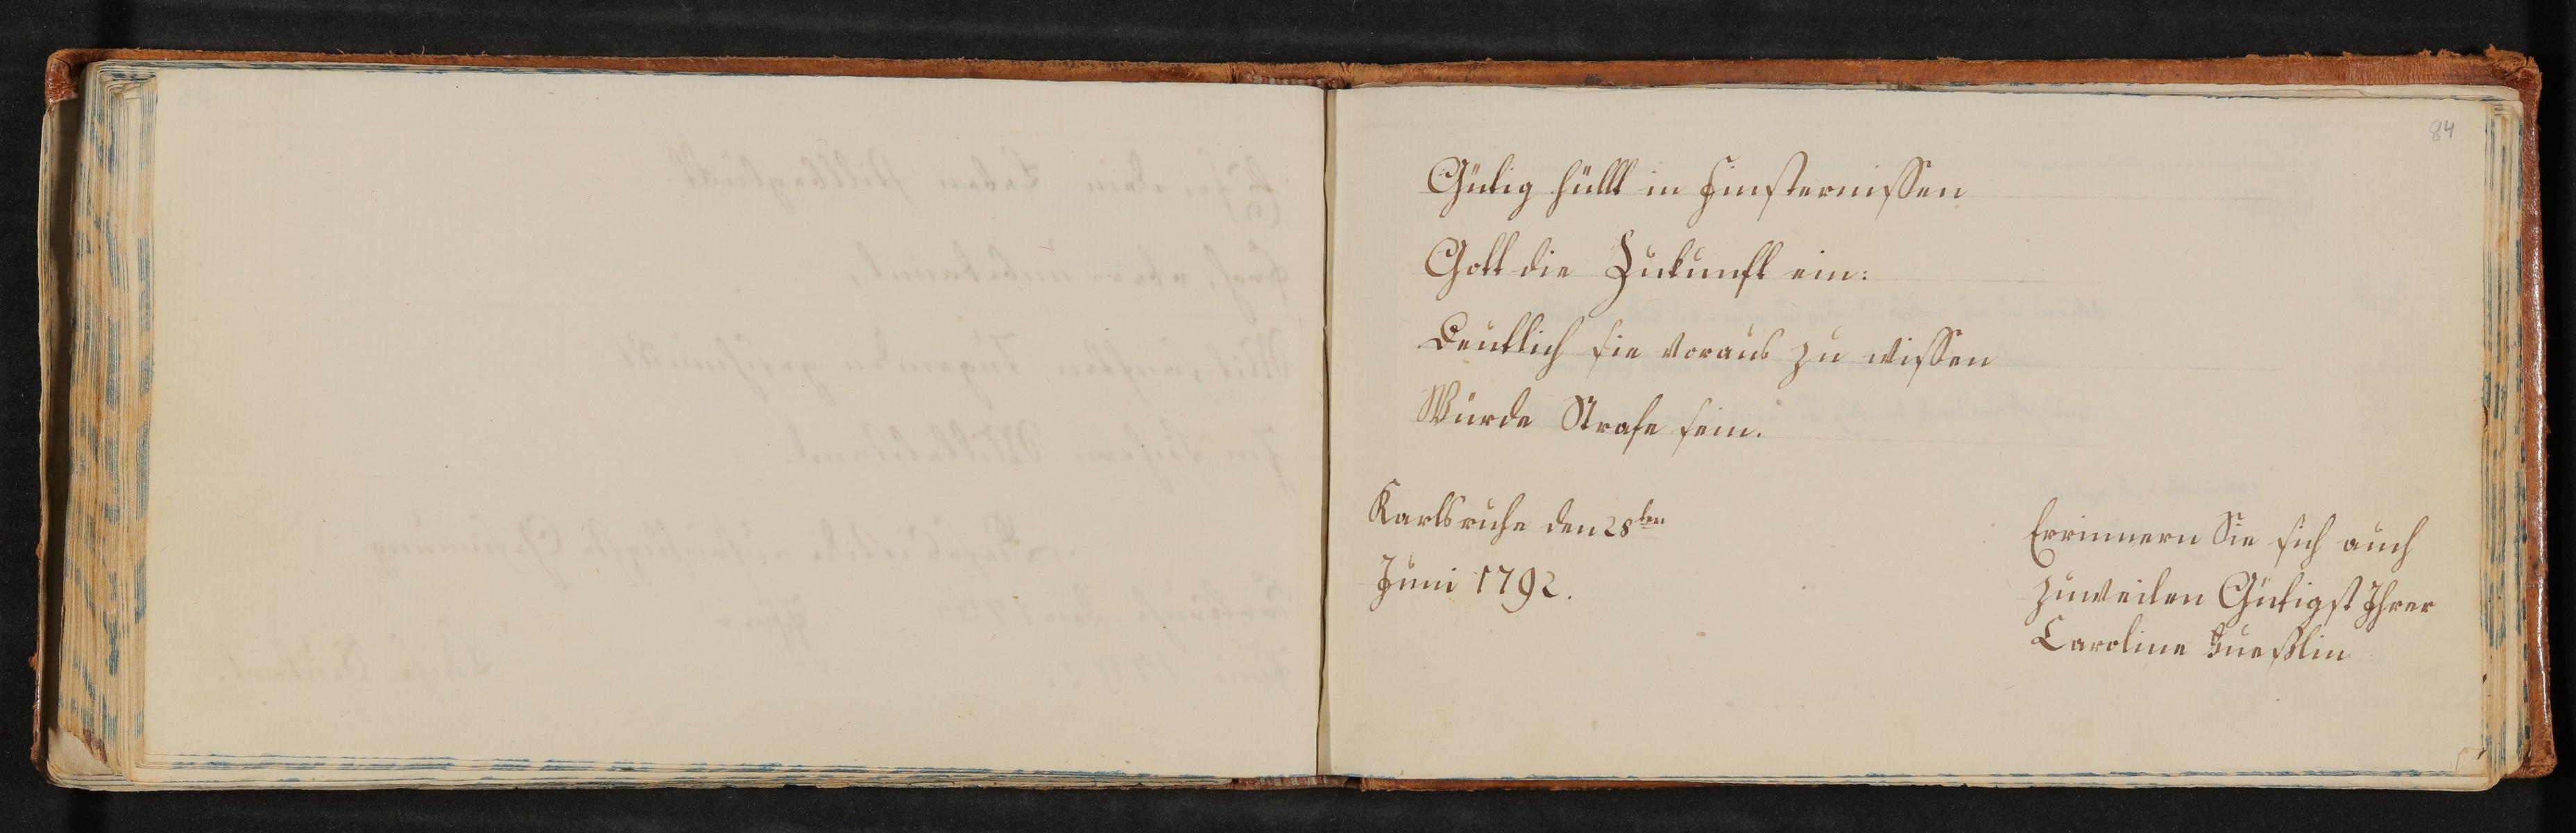 84
Gütig hüllt in Finsternissen
Gott die Zukunft ein:
Deutlich sie voraus zu wissen
Würde Strafe sein.
Karlsruhe den 28ten
Juni 1792.
Errinnern Sie sich auch
zuweilen Gütigst Ihrer
Caroline Fueßlin